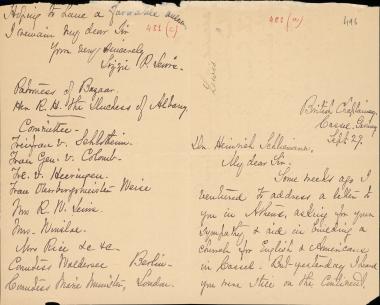 Hoping to have a favorable answer
I remain my dear Sir
Yours very sincerely
Lizzie P. Lewis.
Patroness of Bazaar.
Her R. H. the Duchess of Albany
Committee -
Freifrau v.
Frau Gen. v. Colomb -
Frl. v. Heeringen.
Frau Oberburgermeister Weise
Mrs R. W.
Mrs.
Mrs Rice &c &c -
Countess Waldersee Berlin -
Countess Münster, London.
481 (c)
481 (a)
496
Lewis
British Chaplaincy
Cassel, Germany
Sept 27.
Dr. Heinrich Schliemann.
My dear Sir.
Some weeks ago I
ventured to address a letter to
you in Athens, asking for your
sympathy, & aid in building a
Church for English & Americans
in Cassel. But yesterday I heard
you were still on the Continent.